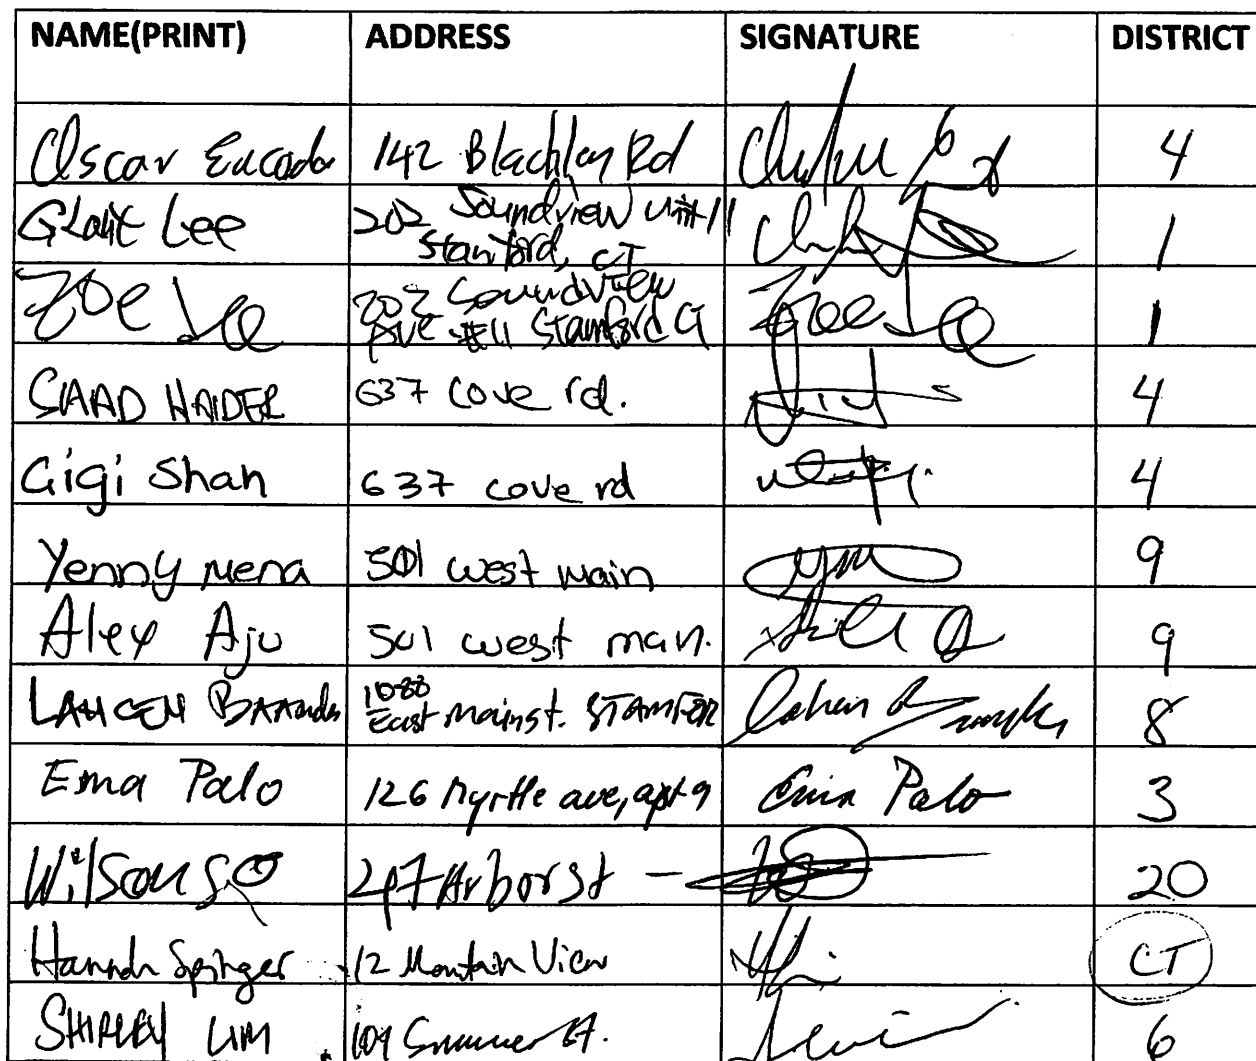 NAME(PRINT) ADDRESS SIGNATURE DISTRICT
Oscar 142 Blachley Rd 4
Grant Lee 202 Soundview unit 11
Stamford, CT 1
Zoe Lee 202 Soundview
Ave #11 Stamford CT Zoe Lee 1
SAAD HAIDER 637 cove rd. 4
Gigi Shah 637 cove rd 4
Yenny Mena 501 west main ym 9
Alex Aju 501 west man. 9
LAHCEN 1088
East main st. STAMFOR 8
Ema Palo 126 Myrtle ave, apt 9 Ema Palo 3
Wilson 247 Arbor st 20
Hannah Springer 12 Mountain View CT
SHIRLEY LIM 109 Summer St. 6